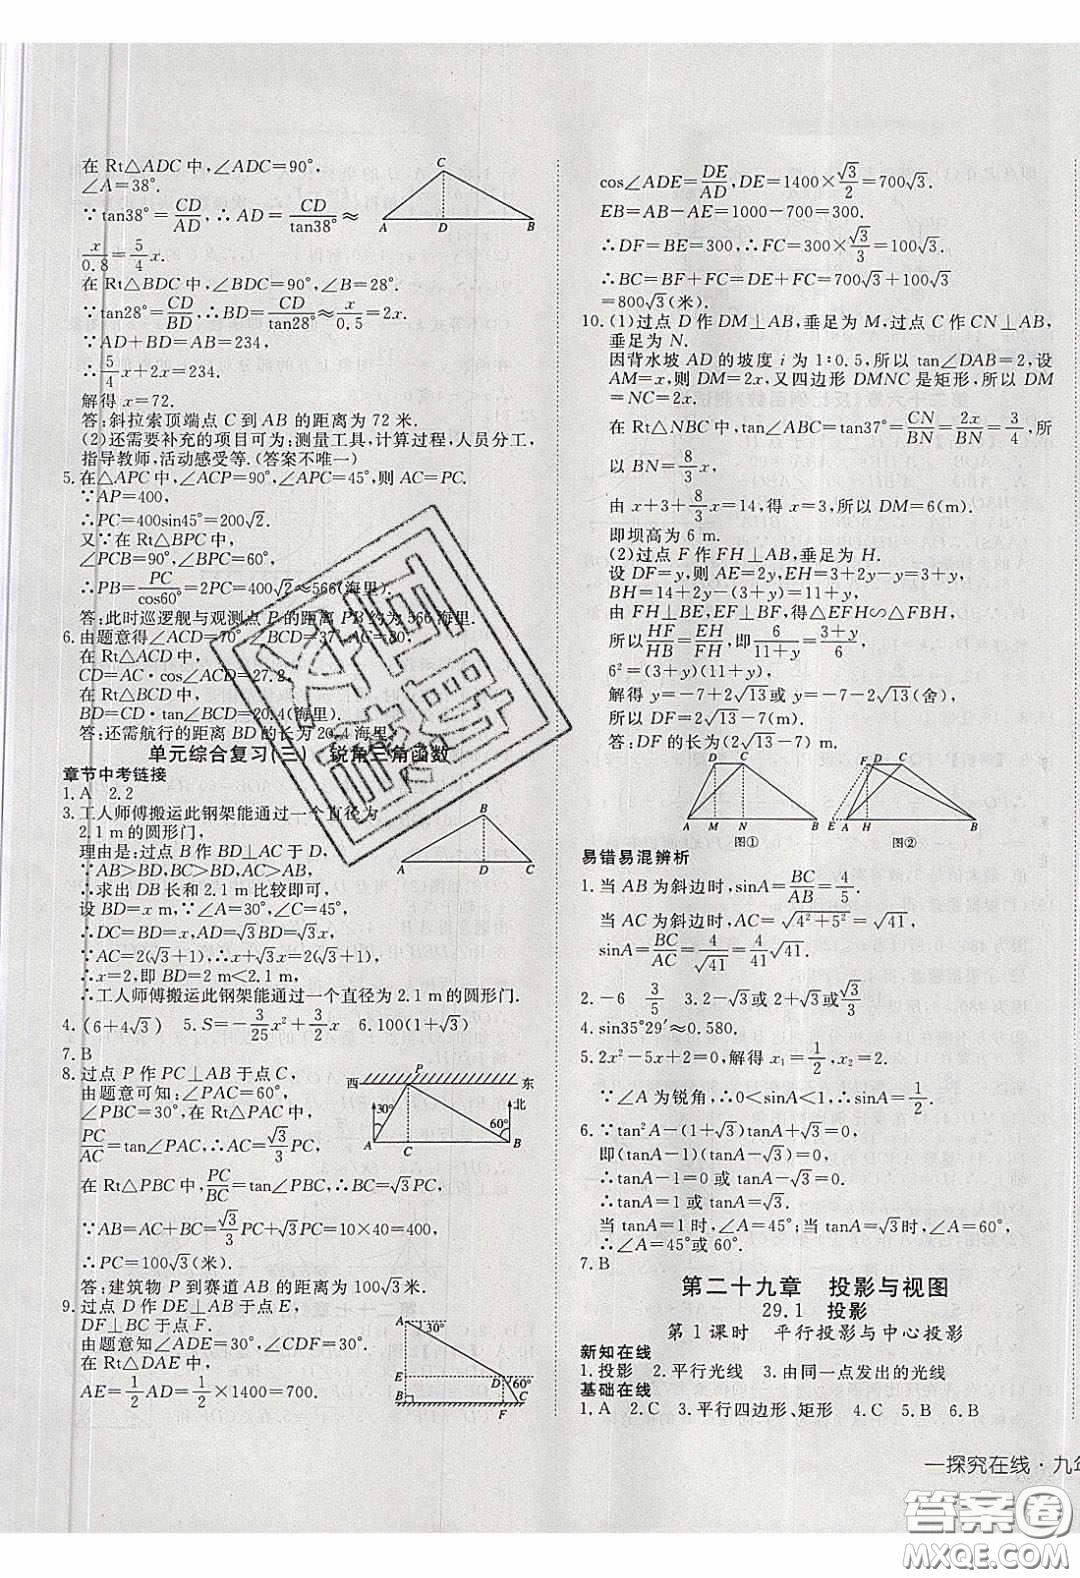 在 Rt△ADC 中,∠ADC=90°,
∠A=38°.
∵tan38°=CD/AD,∴AD=CD/tan38°≈
x/0.8=5/4x.
在 Rt△BDC 中,∠BDC=90°,∠B=28°.
∵tan28°=CD/BD,∴BD=CD/tan28°≈x/0.5=2x.
∵AD+BD=AB=234,
∴5/4x+2x=234.
解得 x=72.
答:斜拉索顶端点 C 到 AB 的距离为 72 米.
(2)还需要补充的项目可为:测量工具,计算过程,人员分工,
指导教师,活动感受等.(答案不唯一)
5.在△APC 中,∠ACP=90°,∠APC=45°,则 AC=PC.
∵AP=400,
∴PC=400sin45°=200√2.
又∵在 Rt△BPC 中,
∠PCB=90°,∠BPC=60°,
∴PB=PC/cos60°=2PC=400√2≈566(海里).
答:此时巡逻舰与观测点 P 的距离 PB 约为 566 海里.
6.由题意得∠ACD=70°,∠BCD=37°,AC=80,
在 Rt△ACD 中,
CD=AC·cos∠ACD=27.2,
在 Rt△BCD 中,
BD=CD·tan∠BCD=20.4(海里).
答:还需航行的距离 BD 的长为 20.4 海里.
单元综合复习(三) 锐角三角函数
章节中考链接
1.A 2.2
3.工人师傅搬运此钢架能通过一个直径为
2.1 m的圆形门,
理由是:过点 B 作 BD⊥AC 于 D,
∵AB>BD,BC>BD,AC>AB,
∴求出 DB 长和 2.1 m比较即可,
设 BD=x m,∵∠A=30°,∠C=45°,
∴DC=BD=x m,AD=√3BD=√3x m,
∵AC=2(√3+1),∴x+√3x=2(√3+1),
∴x=2,即 BD=2 m<2.1 m,
∴工人师傅搬运此钢架能通过一个直径为 2.1 m的圆形门.
4.(6+4√3) 5.S=-3/25x²+3/2x 6.100(1+√3)
7.B
8.过点 P 作 PC⊥AB 于点 C,
由题意可知:∠PAC=60°,
∠PBC=30°,在 Rt△PAC 中,
PC/AC=tan∠PAC,∴AC=√3/3PC,
在 Rt△PBC 中,PC/BC=tan∠PBC,∴BC=√3PC,
∵AB=AC+BC=√3/3PC+√3PC=10×40=400,
∴PC=100√3(米).
答:建筑物 P 到赛道 AB 的距离为 100√3米.
9.过点 D 作 DE⊥AB 于点 E,
DF⊥BC 于点 F,
由题意知∠ADE=30°,∠CDF=30°,
在 Rt△DAE 中,
AE=1/2AD=1/2×1400=700.
C
A D B
B
A D C
西 P 东
30° 北
60°
A C B
A 30°
E D 60°
B F C
cos∠ADE=DE/AD,DE=1400×√3/2=700√3.
EB=AB-AE=1000-700=300.
∴DF=BE=300,∴FC=300×√3/3=100√3.
∴BC=BF+FC=DE+FC=700√3+100√3
=800√3(米).
10.(1)过点 D 作 DM⊥AB,垂足为 M,过点 C 作 CN⊥AB,
垂足为 N.
因背水坡 AD 的坡度 i 为 1∶0.5,所以 tan∠DAB=2,设
AM=x,则 DM=2x,又四边形 DMNC 是矩形,所以 DM
=NC=2x.
在 Rt△NBC 中,tan∠ABC=tan37°=CN/BN=2x/BN=3/4,所
以 BN=8/3x,
由 x+3+8/3x=14,得 x=3,所以 DM=6(m).
即坝高为 6 m.
(2)过点 F 作 FH⊥AB,垂足为 H.
设 DF=y,则 AE=2y,EH=3+2y-y=3+y,
BH=14+2y-(3+y)=11+y,
由 FH⊥BE,EF⊥BF,得△EFH∽△FBH,
所以HF/HB=EH/FH,即6/(11+y)=(3+y)/6
6²=(3+y)(11+y),
解得 y=-7+2√13或 y=-7-2√13(舍),
所以 DF=2√13-7(m).
答:DF 的长为(2√13-7)米.
D C
A M N B
图①
F D C
E A H B
图②
易错易混辨析
1.当 AB 为斜边时,sinA=BC/AB=4/5.
当 AC 为斜边时,AC=√(4²+5²)=√41,
sinA=BC/AC=4/√41=4/41√41.
2.-6 3/5 3.2-√3或 2+√3或√3/3
4.sin35°29′≈0.580.
5.2x²-5x+2=0,解得 x₁=1/2,x₂=2.
∵∠A 为锐角,∴0<sinA<1,∴sinA=1/2.
6.∵tan²A-(1+√3)tanA+√3=0,
即(tanA-1)(tanA-√3)=0,
∴tanA-1=0 或 tanA-√3=0,
∴tanA=1 或 tanA=√3.
当 tanA=1 时,∠A=45°;当 tanA=√3时,∠A=60°,
∴∠A=45°或 60°.
7.B
第二十九章 投影与视图
29.1 投影
第 1 课时 平行投影与中心投影
新知在线
1.投影 2.平行光线 3.由同一点发出的光线
基础在线
1.A 2.C 3.平行四边形、矩形 4.C 5.B 6.B
一探究在线·九年
答案圈
MXQE.COM